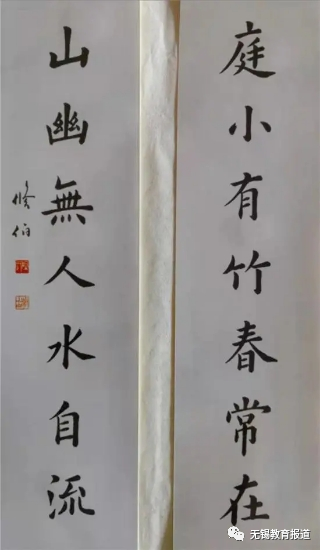 庭小有竹春常在
山幽無人水自流
修伯
无锡教育报道